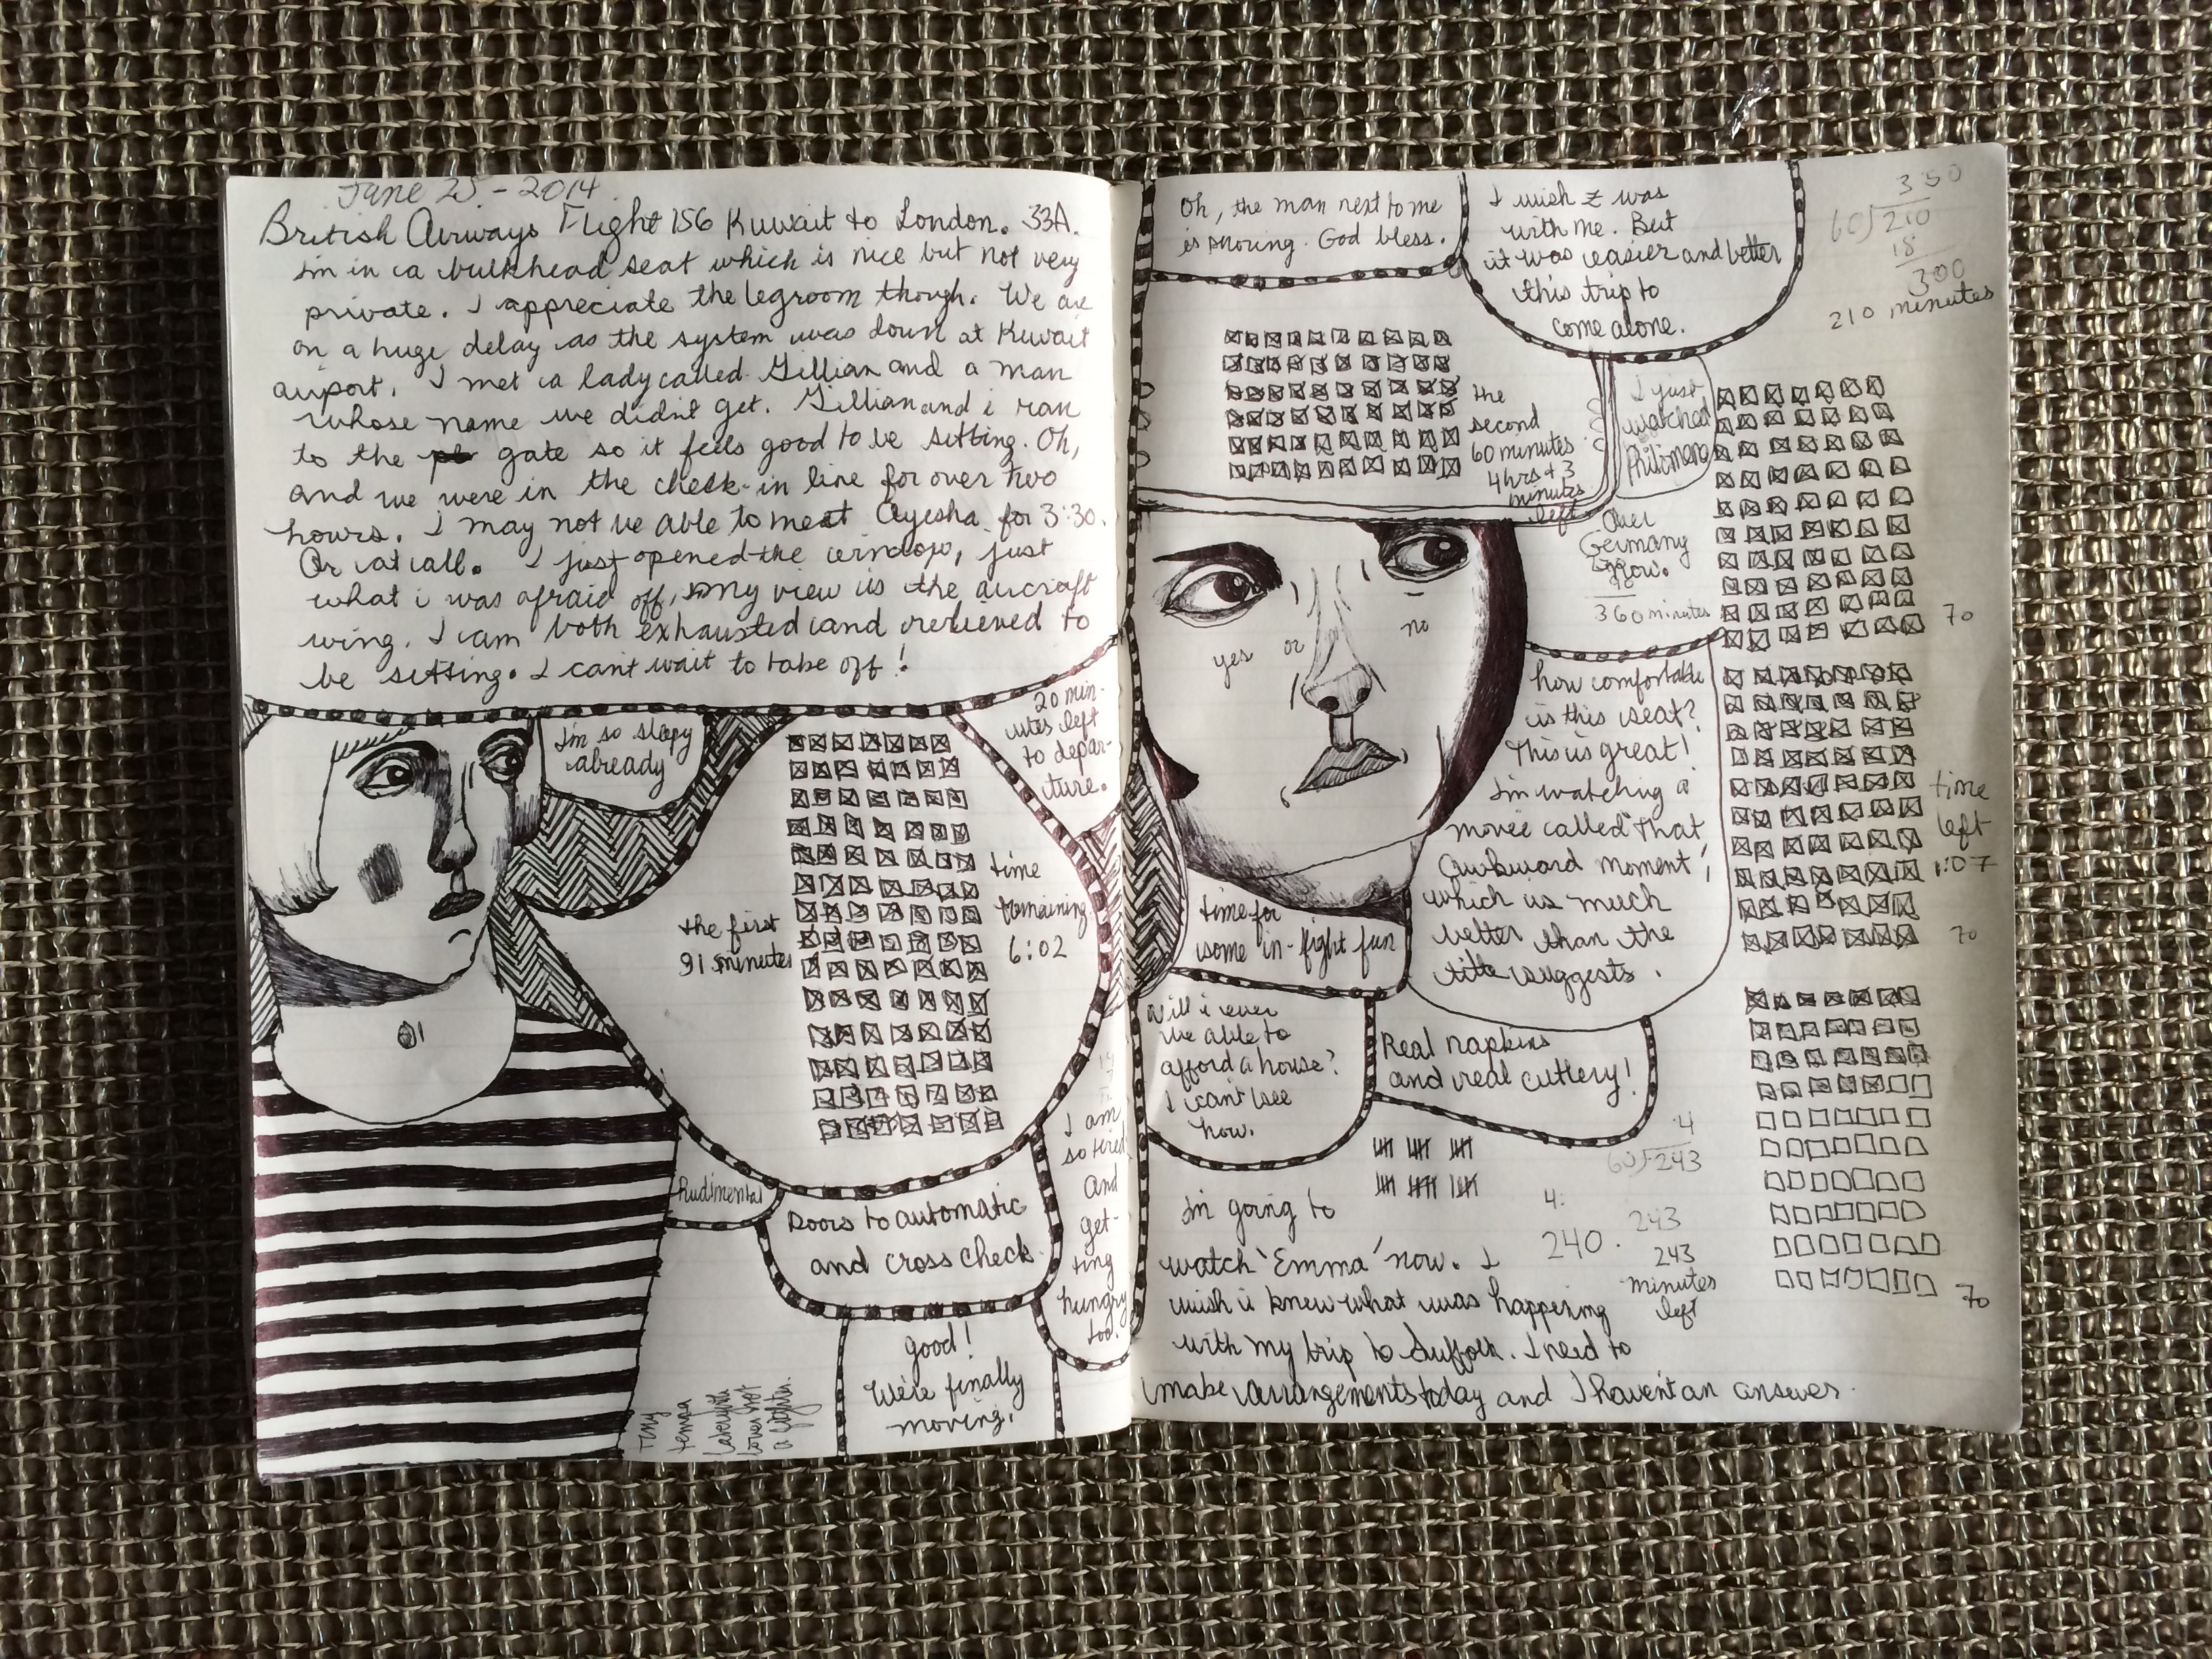 June 25 - 2014
British Airways Flight 156 Kuwait to London. 33A.
I'm in a bulkhead seat which is nice but not very
private. I appreciate the legroom though. We are
on a huge delay as the system was down at Kuwait
airport. I met a lady called Gillian and a man
whose name we didn't get. Gillian and i ran
to the gate so it feels good to be sitting. Oh,
and we were in the check-in line for over two
hours. I may not be able to meet Ayesha for 3:30.
Or at all. I just opened the window, just
what i was afraid off, my view is the aircraft
wing. I am both exhausted and relieved to
be sitting. I can't wait to take off!
I'm so sleepy
already
20 min-
utes left
to depar-
ture.
the first
91 minutes
time
remaining
6:02
I am
so tired
and
get-
ting
hungry
too.
Rudimental
Doors to automatic
and cross check
good!
We're finally
moving.
Oh, the man next to me
is snoring. God bless.
I wish Z was
with me. But
it was easier and better
this trip to
come alone.
3 50
60)210
18
300
210 minutes
the
second
60 minutes
4 hrs + 3
minutes
left
I just
watched
Philomena
Over
Germany
now.
360 minutes
70
yes or no
how comfortable
is this seat?
This is great!
I'm watching a
movie called "That
Awkward Moment",
which is much
better than the
title suggests.
time
left
1:07
70
time for
some in-fight fun
Will i ever
be able to
afford a house?
I can't see
how.
Real napkins
and real cutlery!
4
60)243
4:
240. 243
243
minutes
left
70
I'm going to
watch 'Emma' now. I
wish i knew what was happening
with my trip to Suffolk. I need to
make arrangements today and I haven't an answer.